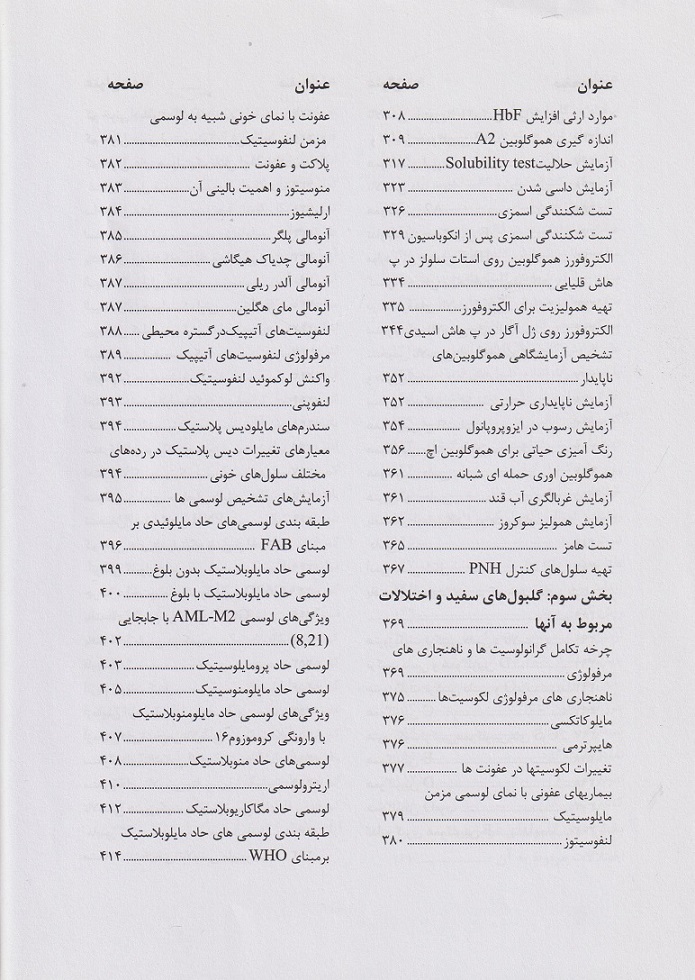 عنوان صفحه
موارد ارثی افزایش HbF ۳۰۸
اندازه گیری هموگلوبین A2 ۳۰۹
آزمایش حلالیت Solubility test ۳۱۷
آزمایش داسی شدن ۳۲۳
تست شکنندگی اسمزی ۳۲۶
تست شکنندگی اسمزی پس از انکوباسیون ۳۲۹
الکتروفورز هموگلوبین روی استات سلولز در پ
هاش قلیایی ۳۳۴
تهیه همولیزیت برای الکتروفورز ۳۳۵
الکتروفورز روی ژل آگار در پ هاش اسیدی ۳۴۴
تشخیص آزمایشگاهی هموگلوبین‌های
ناپایدار ۳۵۲
آزمایش ناپایداری حرارتی ۳۵۲
آزمایش رسوب در ایزوپروپانول ۳۵۴
رنگ آمیزی حیاتی برای هموگلوبین اچ ۳۵۶
هموگلوبین اوری حمله ای شبانه ۳۶۱
آزمایش غربالگری آب قند ۳۶۱
آزمایش همولیز سوکروز ۳۶۲
تست هامز ۳۶۵
تهیه سلول‌های کنترل PNH ۳۶۷
بخش سوم: گلبول‌های سفید و اختلالات
مربوط به آنها ۳۶۹
چرخه تکامل گرانولوسیت ها و ناهنجاری های
مرفولوژی ۳۶۹
ناهنجاری های مرفولوژی لکوسیت‌ها ۳۷۵
مایلوکاتکسی ۳۷۶
هایپرترمی ۳۷۶
تغییرات لکوسیتها در عفونت ها ۳۷۷
بیماریهای عفونی با نمای لوسمی مزمن
مایلوسیتیک ۳۷۹
لنفوسیتوز ۳۸۰
عنوان صفحه
عفونت با نمای خونی شبیه به لوسمی
مزمن لنفوسیتیک ۳۸۱
پلاکت و عفونت ۳۸۲
منوسیتوز و اهمیت بالینی آن ۳۸۳
ارلیشیوز ۳۸۴
آنومالی پلگر ۳۸۵
آنومالی چدیاک هیگاشی ۳۸۶
آنومالی آلدر ریلی ۳۸۷
آنومالی مای هگلین ۳۸۷
لنفوسیت‌های آتیپیک در گستره محیطی ۳۸۸
مرفولوژی لنفوسیت‌های آتیپیک ۳۸۹
واکنش لوکموئید لنفوسیتیک ۳۹۲
لنفوپنی ۳۹۳
سندرم‌های مایلودیس پلاستیک ۳۹۴
معیارهای تغییرات دیس پلاستیک در رده‌های
مختلف سلول‌های خونی ۳۹۴
آزمایش‌های تشخیص لوسمی ها ۳۹۵
طبقه بندی لوسمی‌های حاد مایلوئیدی بر
مبنای FAB ۳۹۶
لوسمی حاد مایلوبلاستیک بدون بلوغ ۳۹۹
لوسمی حاد مایلوبلاستیک با بلوغ ۴۰۰
ویژگی‌های لوسمی AML-M2 با جابجایی
(8,21) ۴۰۲
لوسمی حاد پرومایلوسیتیک ۴۰۳
لوسمی حاد مایلومنوسیتیک ۴۰۵
ویژگی‌های لوسمی حاد مایلومنوبلاستیک
با وارونگی کروموزوم ۱۶ ۴۰۷
لوسمی‌های حاد منوبلاستیک ۴۰۸
اریترولوسمی ۴۱۰
لوسمی حاد مگاکاریوبلاستیک ۴۱۲
طبقه بندی لوسمی های حاد مایلوبلاستیک
برمبنای WHO ۴۱۴